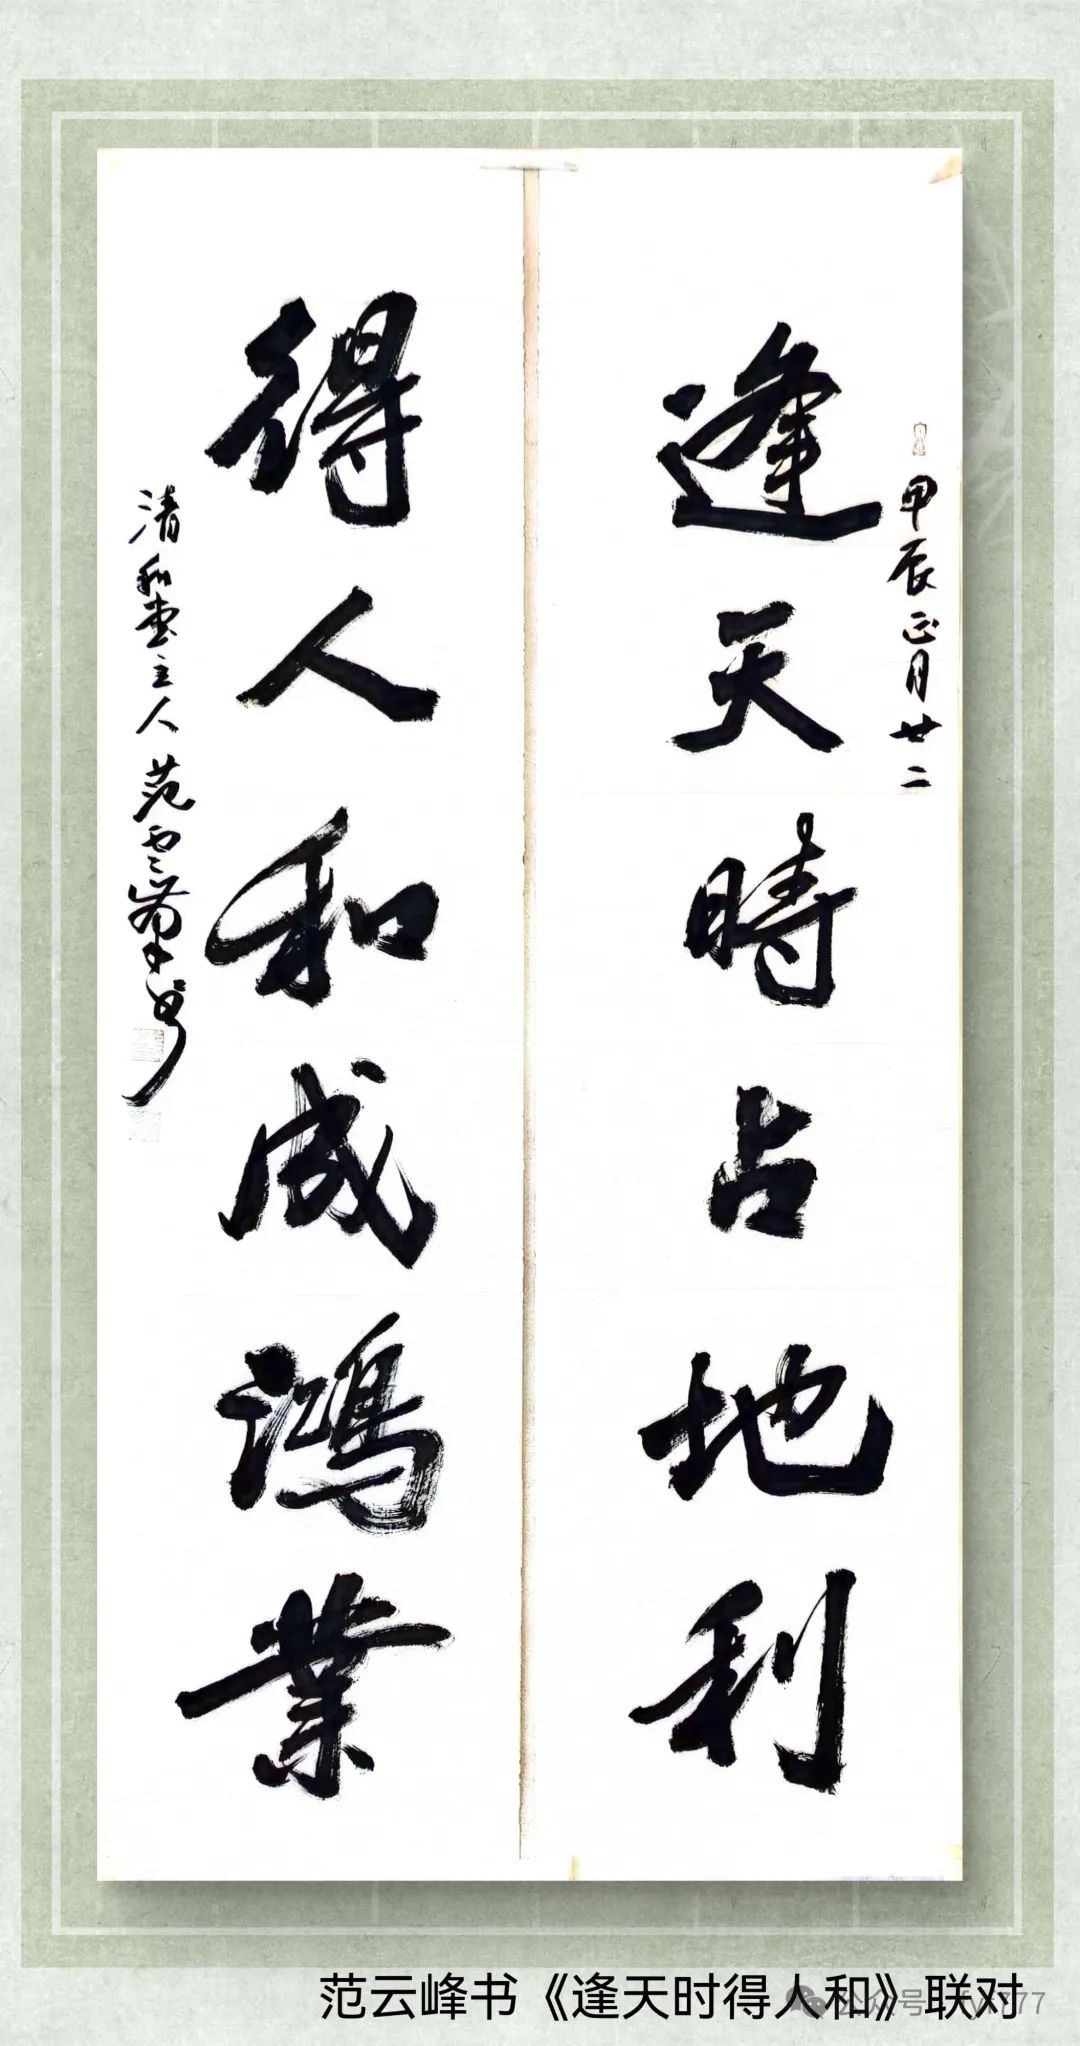 甲辰正月廿二
逢天時占地利
得人和成鴻業
清和堂主人范云峰书
范云峰书《逢天时得人和》联对